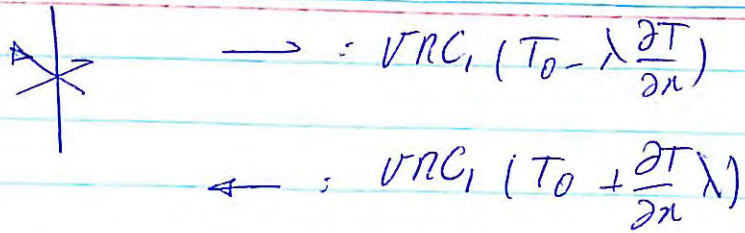 → : vnC₁ (T₀ - λ ∂T/∂x)
← : vnC₁ (T₀ + ∂T/∂x λ)